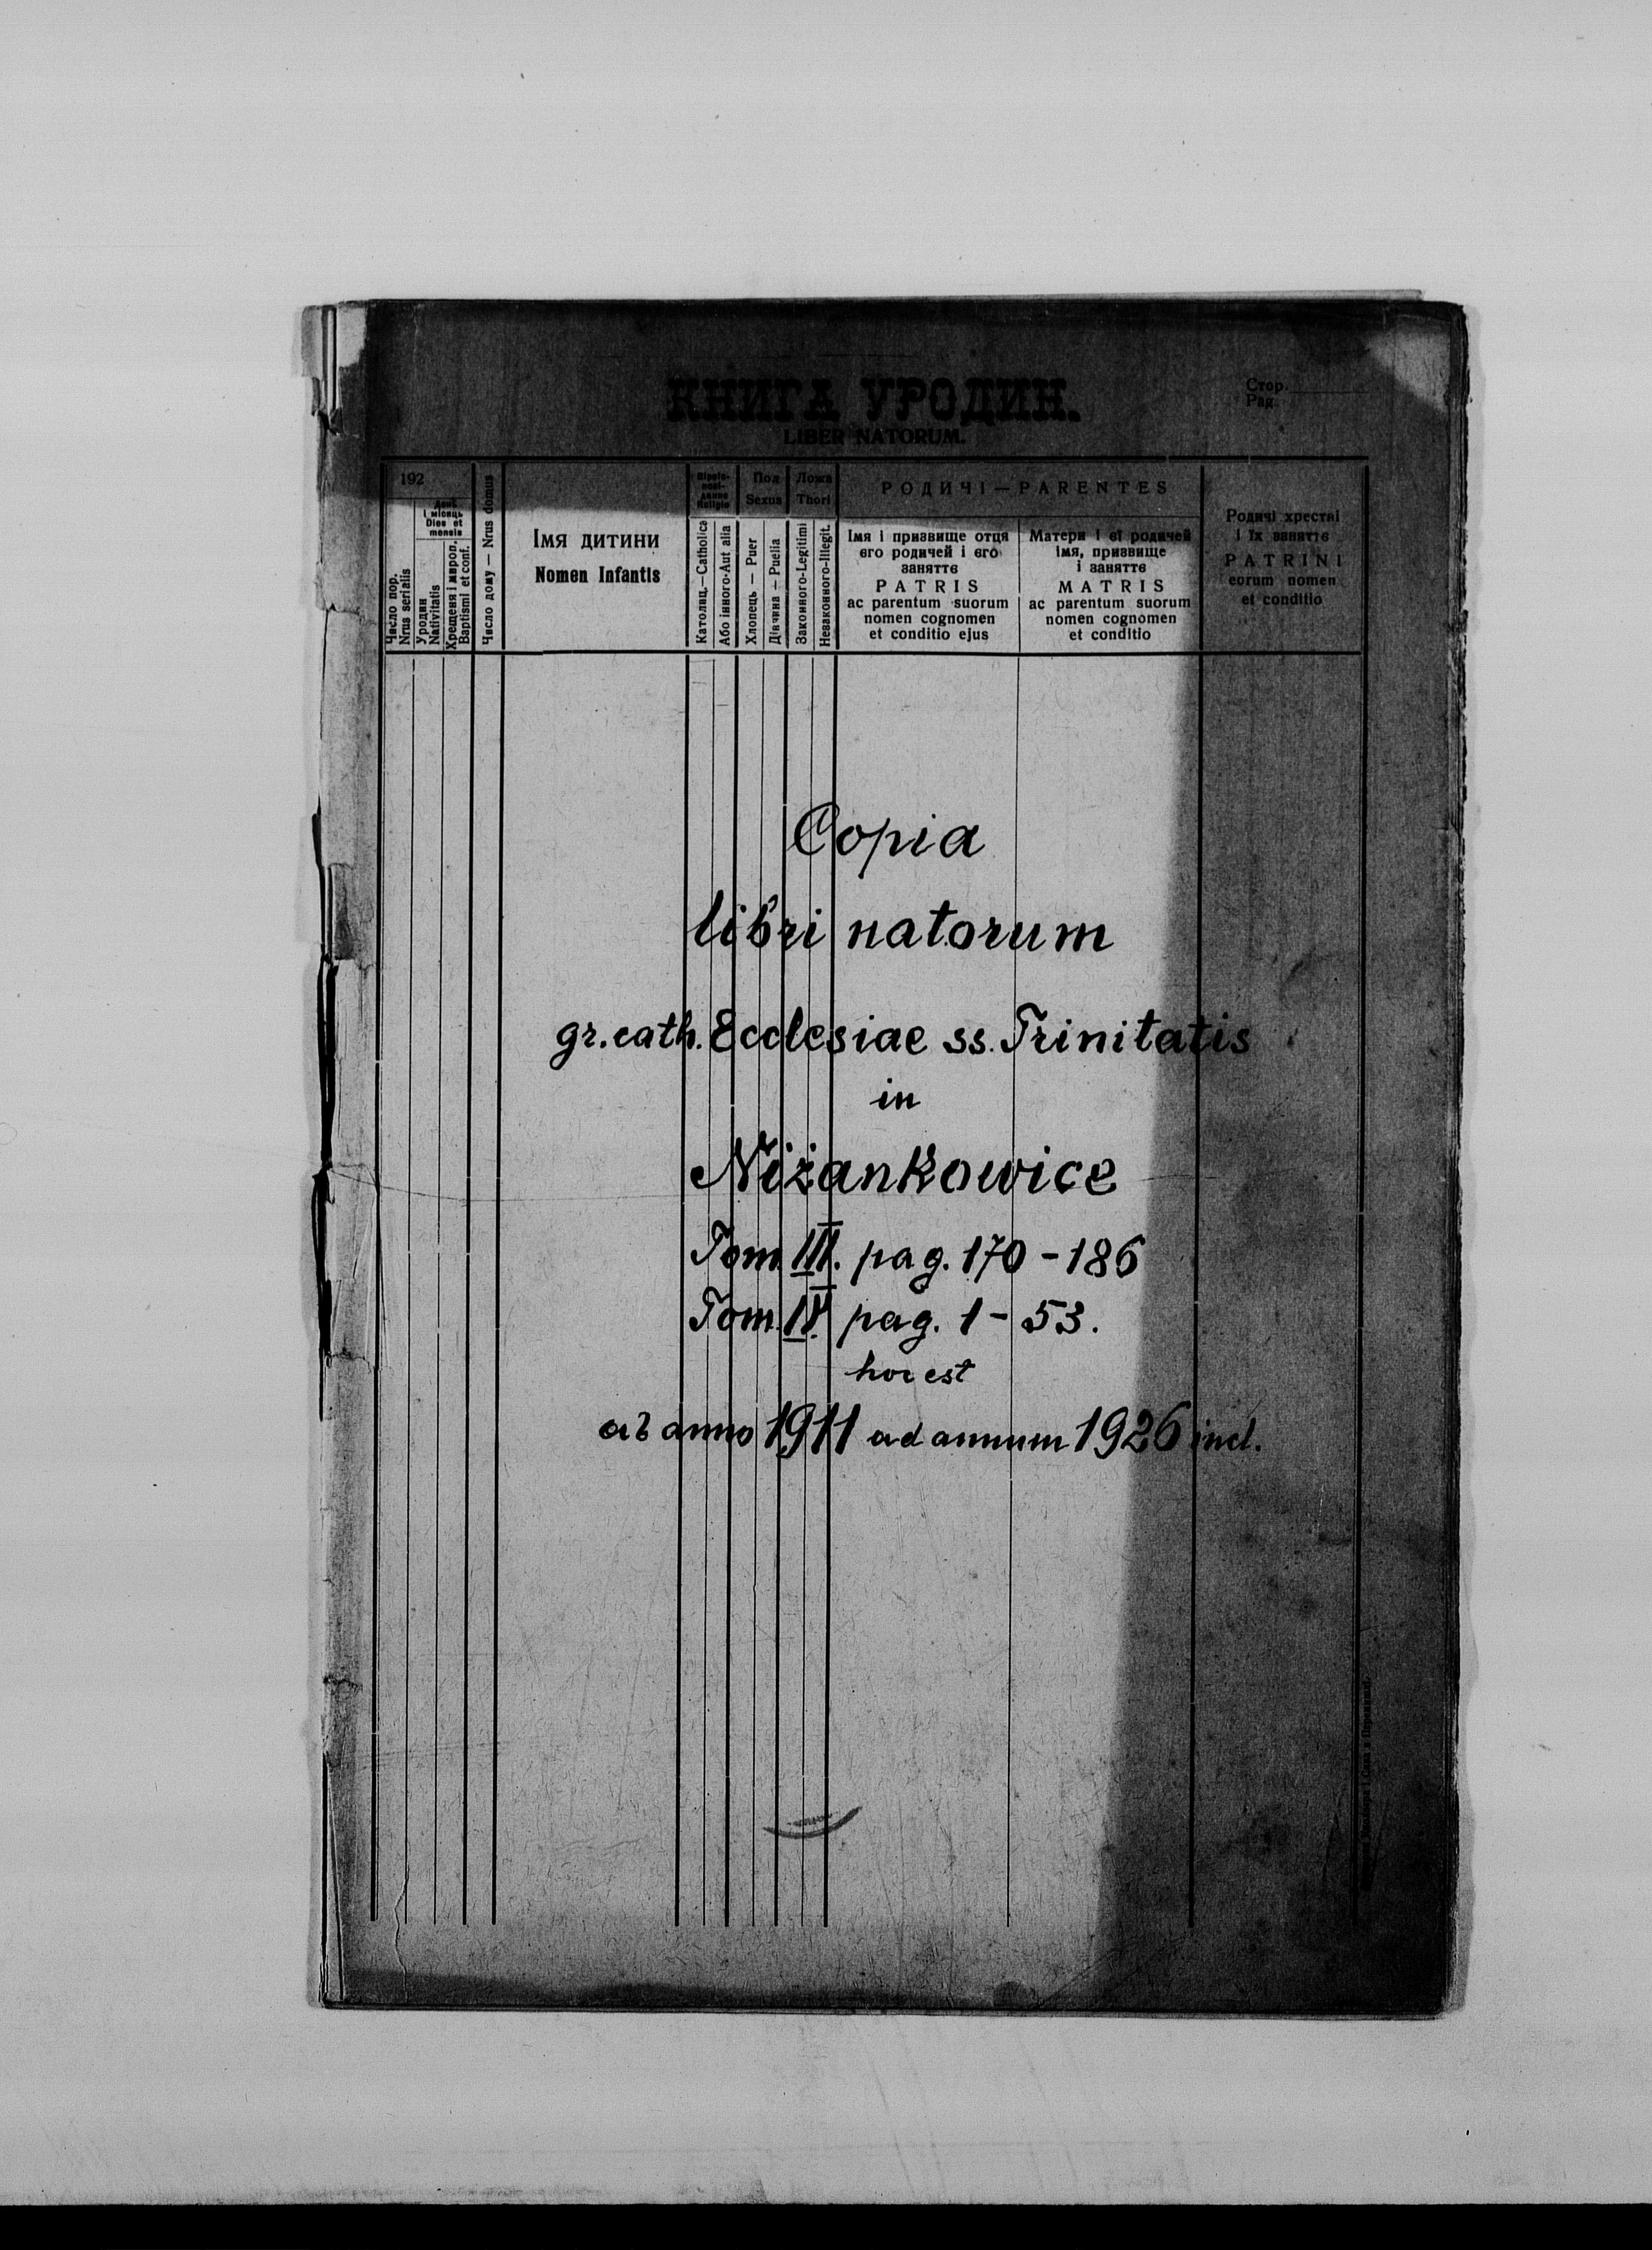 КНИГА УРОДИН.
LIBER NATORUM.
Стор.
Pag.
192
Число пор.
Nrus serialis
День
і місяць
Dies et
mensis
Уродин
Nativitatis
Хрещеня і мироп.
Baptismi et conf.
Число дому — Nrus domus
Імя дитини
Nomen Infantis
Religio
Католиц.—Catholica
Або інного-Aut alia
Пол
Sexus
Хлопець — Puer
Дівчина — Puella
Ложа
Thori
Законного-Legitimi
Незаконного-Illegit.
РОДИЧІ — PARENTES
Імя і призвище отця
его родичей і его
заняттє
PATRIS
ac parentum suorum
nomen cognomen
et conditio ejus
Матери і єї родичей
імя, призвище
і заняттє
MATRIS
ac parentum suorum
nomen cognomen
et conditio
Родичі хрестні
і їх заняттє
PATRINI
eorum nomen
et conditio
Copia
libri natorum
gr. cath. Ecclesiae ss. Trinitatis
in
Niżankowice
Tom III. pag. 170 - 186
Tom. IV. pag. 1 - 53.
hoc est
ab anno 1911 ad annum 1926 incl.